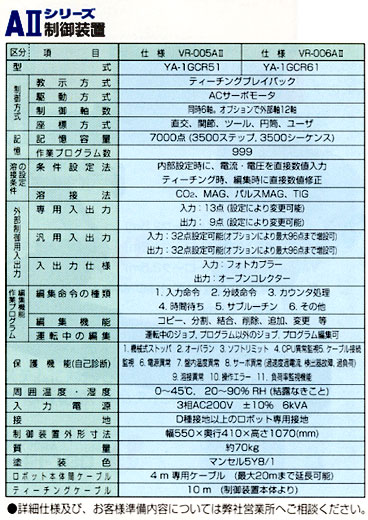 AⅡシリーズ
制御装置
区分 項目 仕様 VR-005AⅡ 仕様 VR-006AⅡ
型式 YA-1GCR51 YA-1GCR61
制御方式
教示方式 ティーチングプレイバック
駆動方式 ACサーボモータ
制御軸数 同時6軸。オプションで外部軸12軸
座標方式 直交、関節、ツール、円筒、ユーザ
記憶
記憶容量 7000点 (3500ステップ、3500シーケンス)
作業プログラム数 999
溶接条件の設定
条件設定法 内部設定時に、電流・電圧を直接数値入力
ティーチング時、編集時に直接数値修正
溶接法 CO₂、MAG、パルスMAG、TIG
外部制御用入出力
専用入出力 入力：13点 (設定により変更可能)
出力： 9点 (設定により変更可能)
汎用入出力 入力：32点設定可能(オプションにより最大96点まで増設可)
出力：32点設定可能(オプションにより最大96点まで増設可)
入出力仕様 入力：フォトカプラー
出力：オープンコレクター
作業プログラム編集機能
編集命令の種類 1. 入力命令 2. 分岐命令 3. カウンタ処理
4. 時間待ち 5. サブルーチン 6. その他
編集機能 コピー、分割、結合、削除、追加、変更 等
運転中の編集 運転中のジョブ、プログラム以外のジョブ、プログラム編集可
保護機能(自己診断) 1. 機械式ストッパ 2. オーバラン 3. ソフトリミット 4. CPU異常監視 5. ケーブル接続
監視 6. 電源異常 7. 盤内温度異常 8. サーボ異常(過速度過電流、検出器故障、過負荷)
9. 溶接異常 10. 操作エラー 11. 負荷率監視機能
周囲温度・湿度 0〜45℃、20〜90％RH (結露なきこと)
入力電源 3相AC200V ±10% 6kVA
接地 D種接地以上のロボット専用接地
制御装置外形寸法 幅550×奥行410×高さ1070(mm)
質量 約70kg
塗装色 マンセル5Y8/1
ロボット本体間ケーブル 4m専用ケーブル (最大20mまで延長可能)
ティーチングケーブル 10m (制御装置本体より)
●詳細仕様及び、お客様準備内容については弊社営業所へご相談ください。